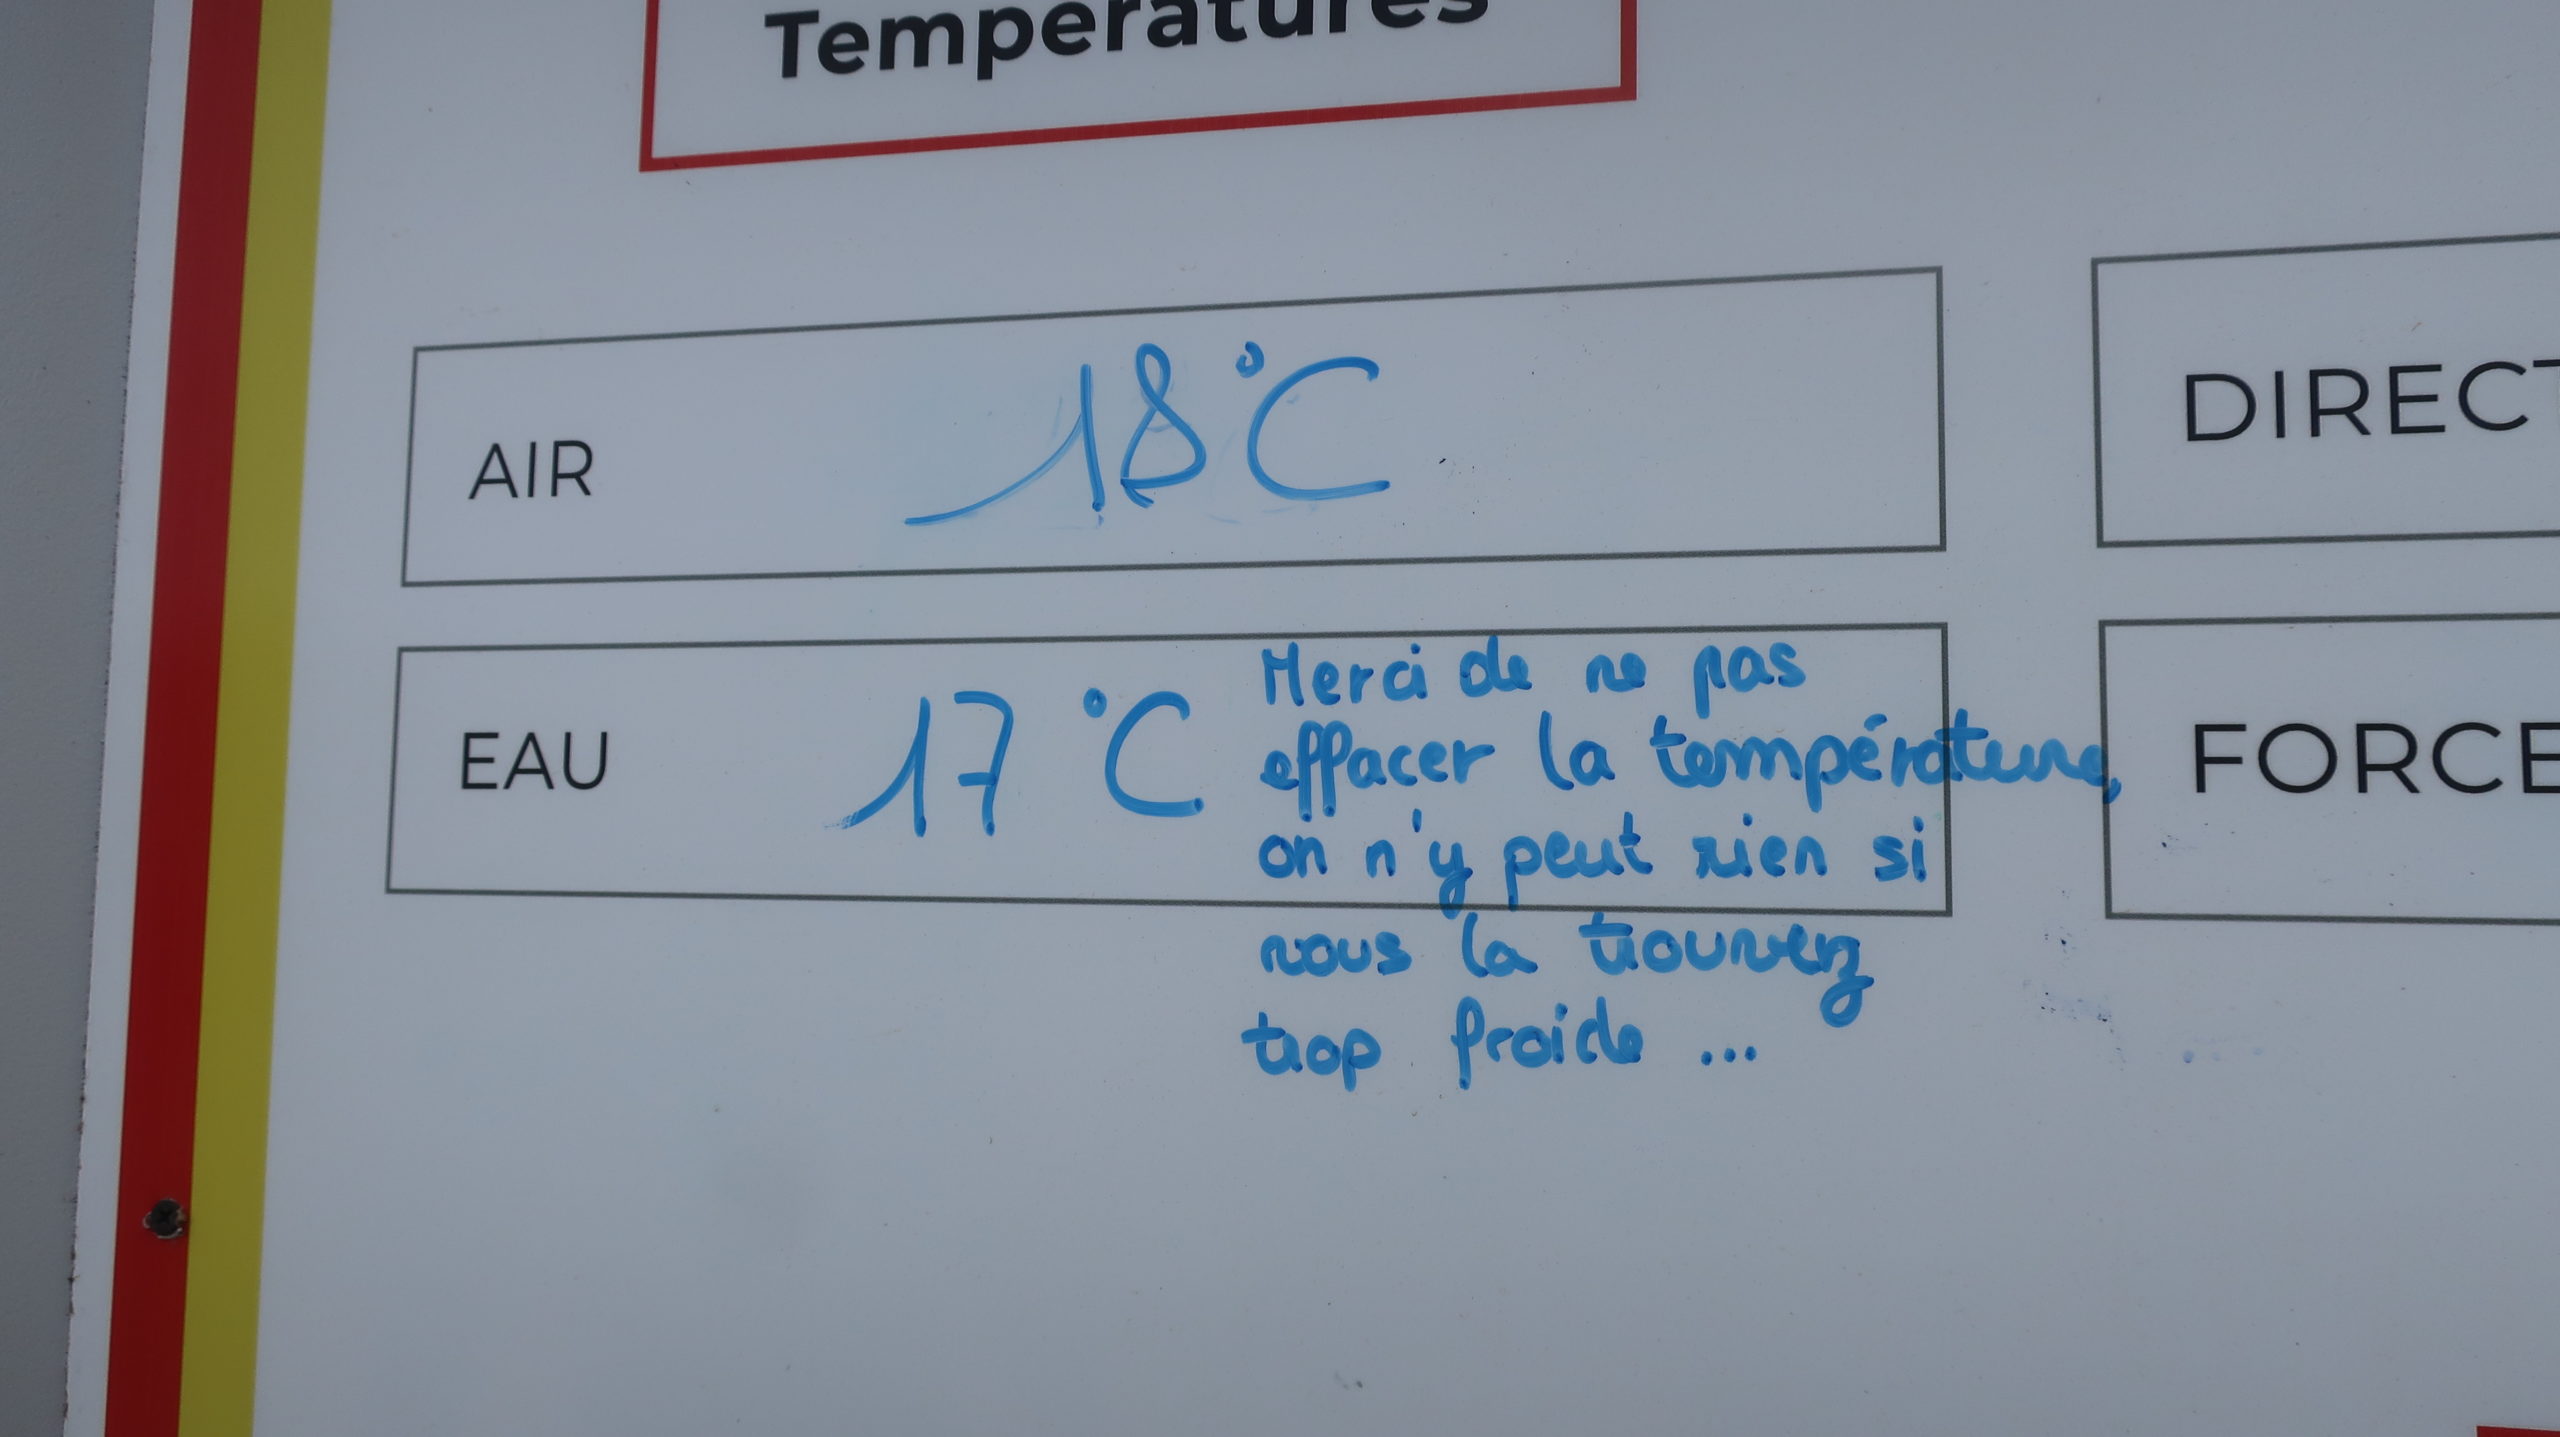 Températures
AIR 18°C
DIRECT
EAU 17°C
FORCE
Merci de ne pas
effacer la température,
on n'y peut rien si
vous la trouvez
trop froide ...